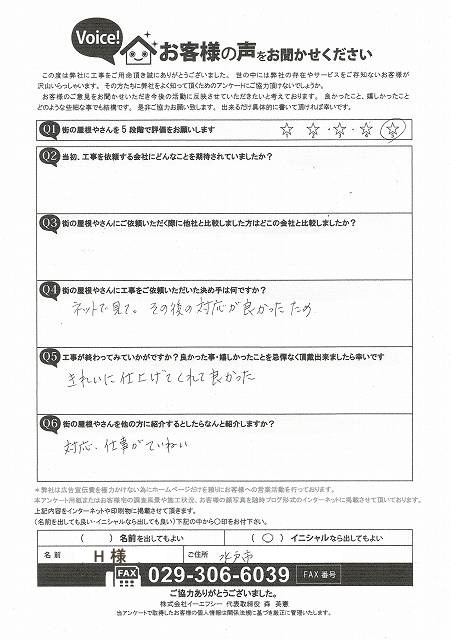 Voice! お客様の声をお聞かせください
この度は弊社に工事をご用命頂き誠にありがとうございました。世の中には弊社の存在やサービスをご存知ないお客様が
沢山いらっしゃいます。その方たちに弊社をよく知って頂くためのアンケートにご協力頂けないでしょうか。
お客様のご意見をお聞かせいただき今後の活動に反映させていただきたいと考えております。良かったこと、嬉しかったこと
どのような些細な事でも結構です。是非ご協力お願い致します。出来るだけ具体的に書いて頂ければ幸いです。
Q1 街の屋根やさんを5段階で評価をお願いします ☆・☆・☆・☆・☆
Q2 当初、工事を依頼する会社にどんなことを期待されていましたか？
Q3 街の屋根やさんにご依頼いただく際に他社と比較しました方はどこの会社と比較しましたか？
Q4 街の屋根やさんに工事をご依頼いただいた決め手は何ですか？
ネットで見て。その後の対応が良かったため
Q5 工事が終わってみていかがですか？良かった事・嬉しかったことを忌憚なく頂戴出来ましたら幸いです
きれいに仕上げてくれて良かった
Q6 街の屋根やさんを他の方に紹介するとしたらなんと紹介しますか？
対応、仕事がていねい
＊弊社は広告宣伝費を極力かけない為にホームページだけを頼りにお客様への営業活動を行っております。
本アンケート用紙またはお客様宅の調査風景や施工状況、お客様の顔写真を随時ブログ形式のインターネットに掲載させて頂いております。
上記内容をインターネットや印刷物に掲載させて頂きます。
（名前を出しても良い・イニシャルなら出しても良い）下記の中から○印をお付下さい。
（　）名前を出してもよい （○）イニシャルなら出してもよい
名前 H様 ご住所 水戸市
FAX 029-306-6039 FAX番号
ご協力ありがとうございました。
株式会社イーエフシー 代表取締役 森 英憲
当アンケートで取得したお客様の個人情報は関係法規に基づき厳正に管理いたします。